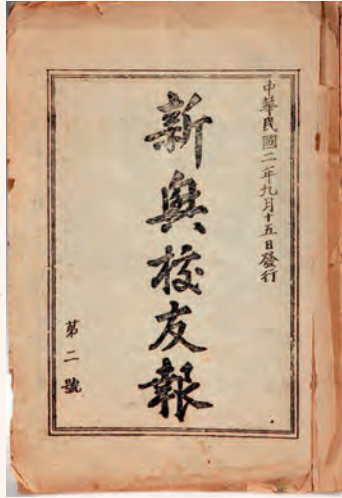 中華民國二年九月十五日發行
新興校友報
第二號